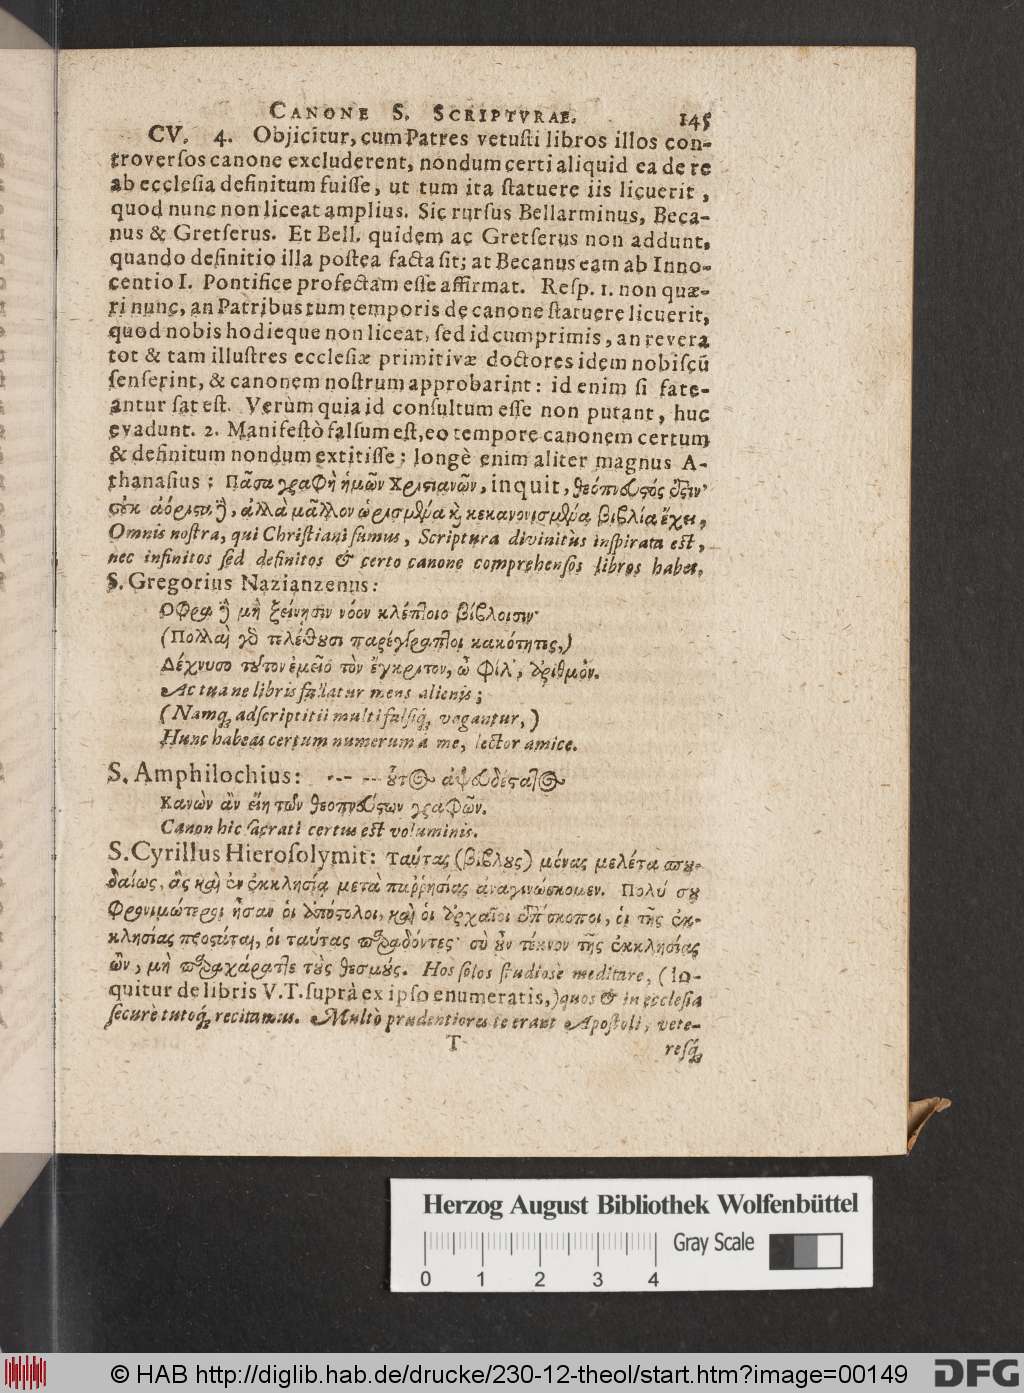 CANONE S. SCRIPTVRAE. 145
CV. 4. Objicitur, cum Patres vetuſti libros illos con-
troverſos canone excluderent, nondum certi aliquid ea de re
ab eccleſia definitum fuiſſe, ut tum ita ſtatuere iis licuerit,
quod nunc non liceat amplius. Sic rurſus Bellarminus, Beca-
nus & Gretſerus. Et Bell. quidem ac Gretſerus non addunt,
quando definitio illa poſtea facta ſit; at Becanus eam ab Inno-
centio I. Pontifice profectam eſſe affirmat. Reſp. 1. non quæ-
ri nunc, an Patribus tum temporis de canone ſtatuere licuerit,
quod nobis hodieque non liceat, ſed id cumprimis, an revera
tot & tam illuſtres eccleſiæ primitivæ doctores idem nobiſcũ
ſenſerint, & canonem noſtrum approbarint: id enim ſi fate-
antur ſat eſt. Verùm quia id conſultum eſſe non putant, huc
evadunt. 2. Manifeſtò falſum eſt, eo tempore canonem certum
& definitum nondum extitiſſe; longè enim aliter magnus A-
thanaſius: Πᾶσα γραφὴ ἡμῶν Χριστιανῶν, inquit, θεόπνευστός ἐστιν·
οὐκ ἀόριστα ἢ, ἀλλὰ μᾶλλον ὡρισμένα καὶ κεκανονισμένα βιβλία ἔχει,
Omnis noſtra, qui Chriſtiani ſumus, Scriptura divinitùs inſpirata eſt,
nec infinitos ſed definitos & certo canone comprehenſos libros habet.
S. Gregorius Nazianzenus:
Οφρα ἢ μὴ ξείνησιν νόον κλέπτοιο βίβλοισιν·
(Πολλαὶ γὸ τελέθουσι παρέγγραπτοι κακότητες,)
Δέχνυσο τοῦτον ἐμεῖο τὸν ἔγκριτον, ὦ φίλ', ἀριθμόν.
Ac tua ne libris fallatur mens alienis;
(Namq; adſcriptitii multi falſiq; vagantur,)
Hunc habeas certum numerum à me, lector amice.
S. Amphilochius: --- --- οὗτος ἀψευδέστατος
Κανὼν ἂν εἴη τῶν θεοπνεύστων γραφῶν.
Canon hic ſacrati certus eſt voluminis.
S. Cyrillus Hieroſolymit: Ταύτας (βίβλους) μόνας μελέτα σπου-
δαίως, ἃς καὶ ἐν ἐκκλησίᾳ μετὰ παῤῥησίας ἀναγινώσκομεν. Πολύ σου
φρονιμώτεροι ἦσαν οἱ ἀπόστολοι, καὶ οἱ ἀρχαῖοι ἐπίσκοποι, οἱ τῆς ἐκ-
κλησίας προστάται, οἱ ταύτας παραδόντες· σὺ οὖν τέκνον τῆς ἐκκλησίας
ὢν, μὴ παραχάραττε τοὺς θεσμούς. Hos ſolos ſtudiosè meditare, (lo-
quitur de libris V.T. ſuprà ex ipſo enumeratis,) quos & in eccleſia
ſecurè tutoq; recitamus. Multò prudentiores te erant Apoſtoli, vete-
T reſq;
Herzog August Bibliothek Wolfenbüttel
Gray Scale
0 1 2 3 4
© HAB http://diglib.hab.de/drucke/230-12-theol/start.htm?image=00149
DFG